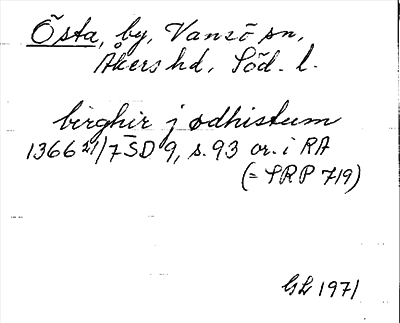 Östa, by, Vansö sn,
Åkers hd, Söd. l.
birghir j ødhistum
1366 21/7 SD 9, s. 93 or. i RA
(= SRP 719)
GL 1971